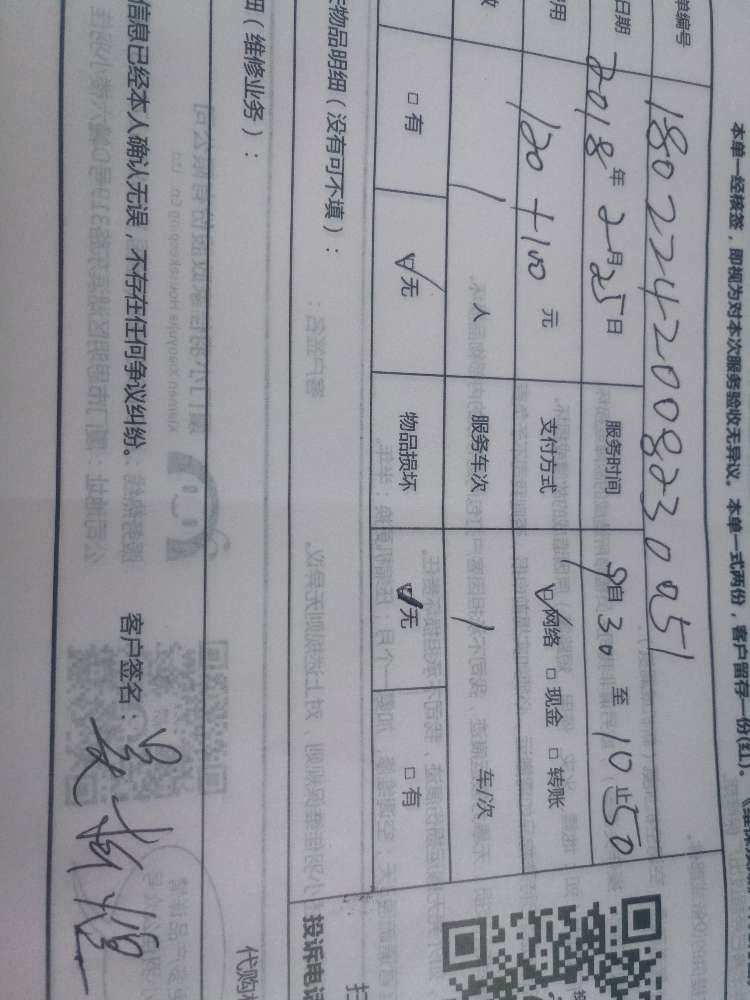 本单一经核签，即视为对本次服务验收无异议。本单一式两份，客户留存一份(红)。
单编号 1802242008230951
日期 2018年2月25日 服务时间 9自30至10止50
用 120+100元 支付方式 网络 □现金 □转账
数 1人 服务车次 1车/次
□有 无 物品损坏 无 □有
物品明细（没有可不填）：
细（维修业务）：
信息已经本人确认无误，不存在任何争议纠纷。 客户签名：
投诉电话
代购